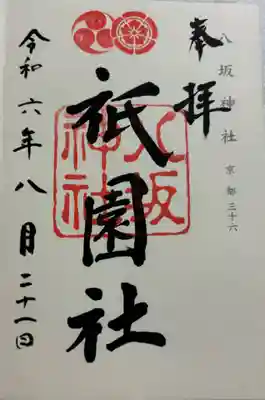 八坂神社 京都三十六
奉拝
祇園社
八坂
神社
令和六年八月二十一日